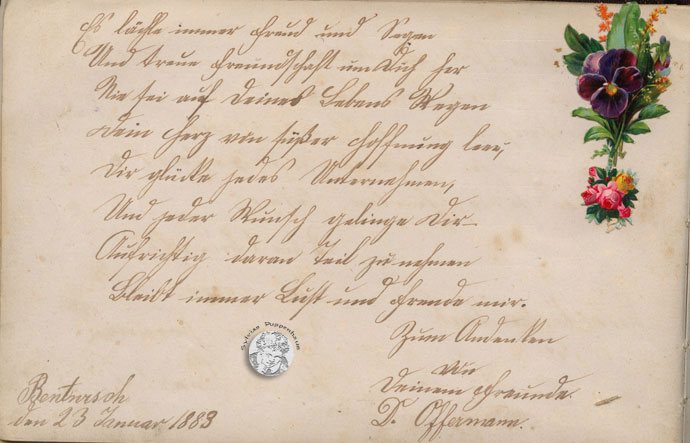 Es lächle immer Freud und Segen
Und treue Freundschaft um Dich her
Nie sei auf Deines Lebens Wegen
Dein Herz von süßer Hoffnung leer,
Dir glücke jedes Unternehmen,
Und jeder Wunsch gelinge Dir
Aufrichtig daran Teil zu nehmen
Bleibt immer Lust und Freude mir.
Zum Andenken
von
Deinem Freunde
D. Offermann.
Sylvias Puppenhaus
den 23 Januar 1883